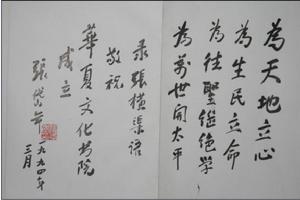 為天地立心
為生民立命
為往聖继绝学
為萬世開太平
录張横渠语
敬祝
華夏文化书院
成立
張岱年
一九九四年
三月